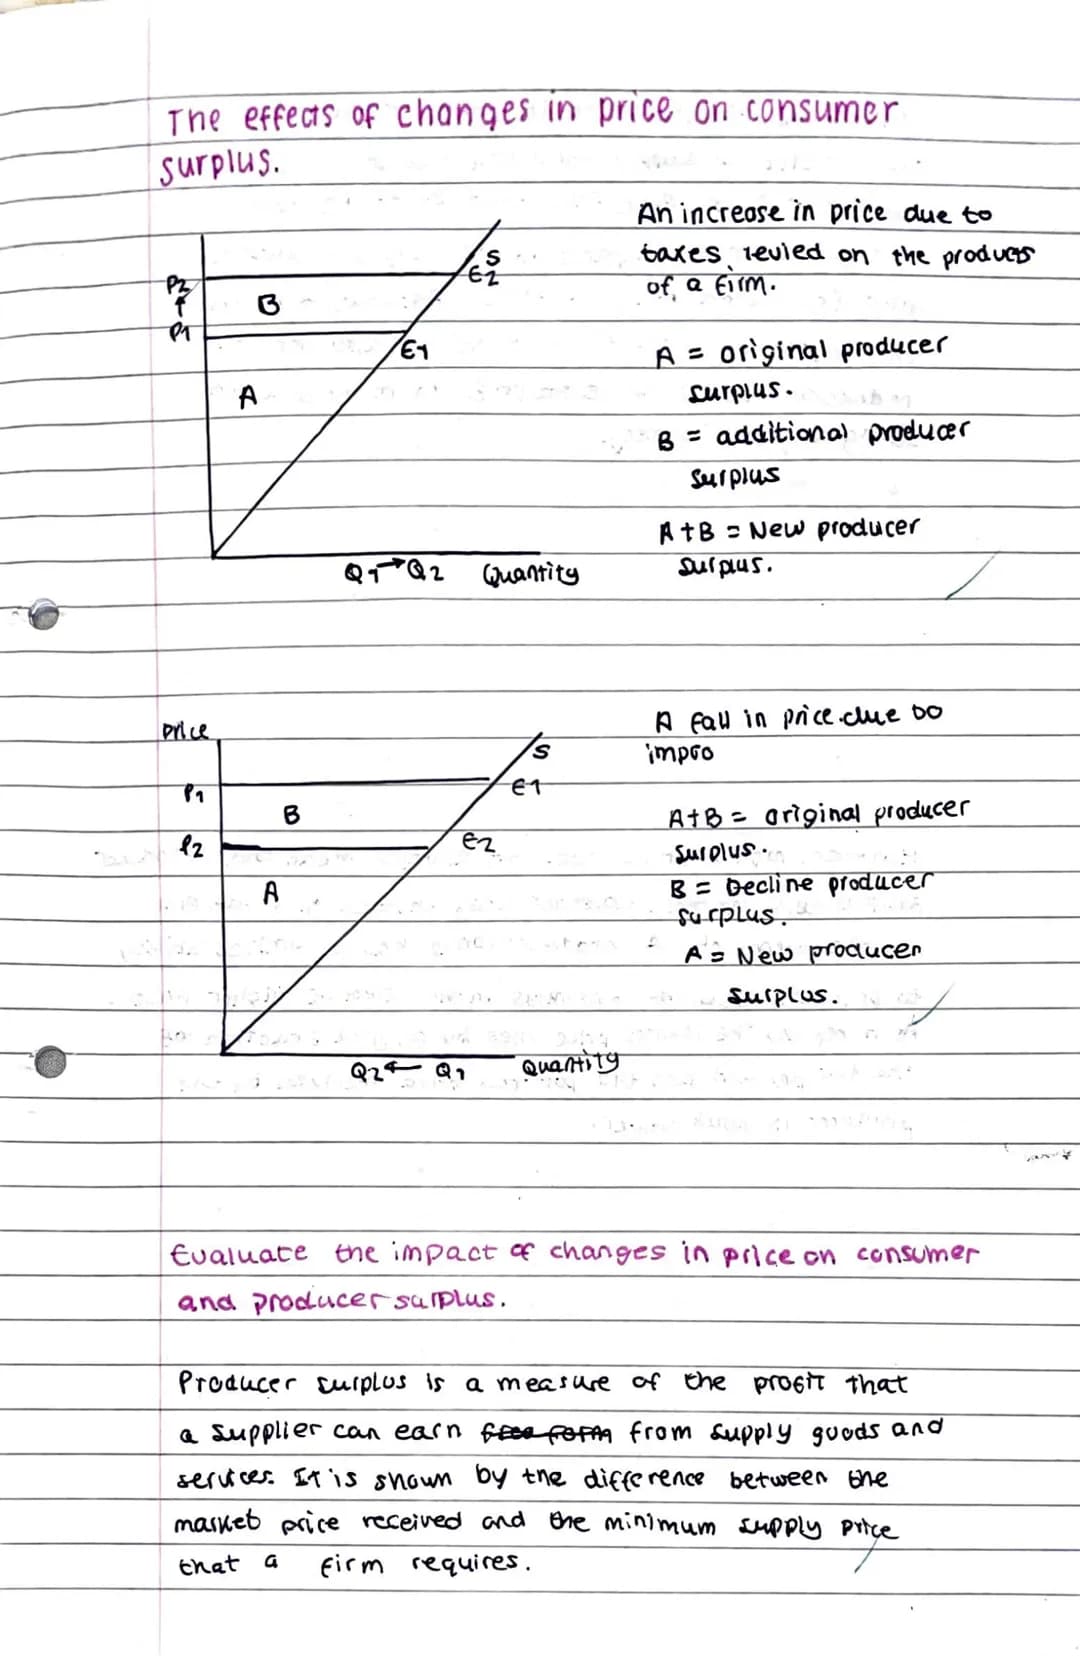 The effects of changes in price on consumer
surplus.
An increase in price due to
taxes levied on the products
of a firm.
P2
↑
P1
B
A
S
E2
E1
Q1→Q2 Quantity
A = original producer
surplus.
B = additional producer
surplus
A+B = New producer
surplus.
A fall in price due to
impro
price
P1
P2
B
A
S
E1
E2
Q2← Q1 Quantity
A+B = original producer
surplus.
B = Decline producer
surplus.
A = New producer
surplus.
Evaluate the impact of changes in price on consumer
and producer surplus.
Producer surplus is a measure of the profit that
a supplier can earn from supply goods and
services. It is shown by the difference between the
market price received and the minimum supply price
that a firm requires.